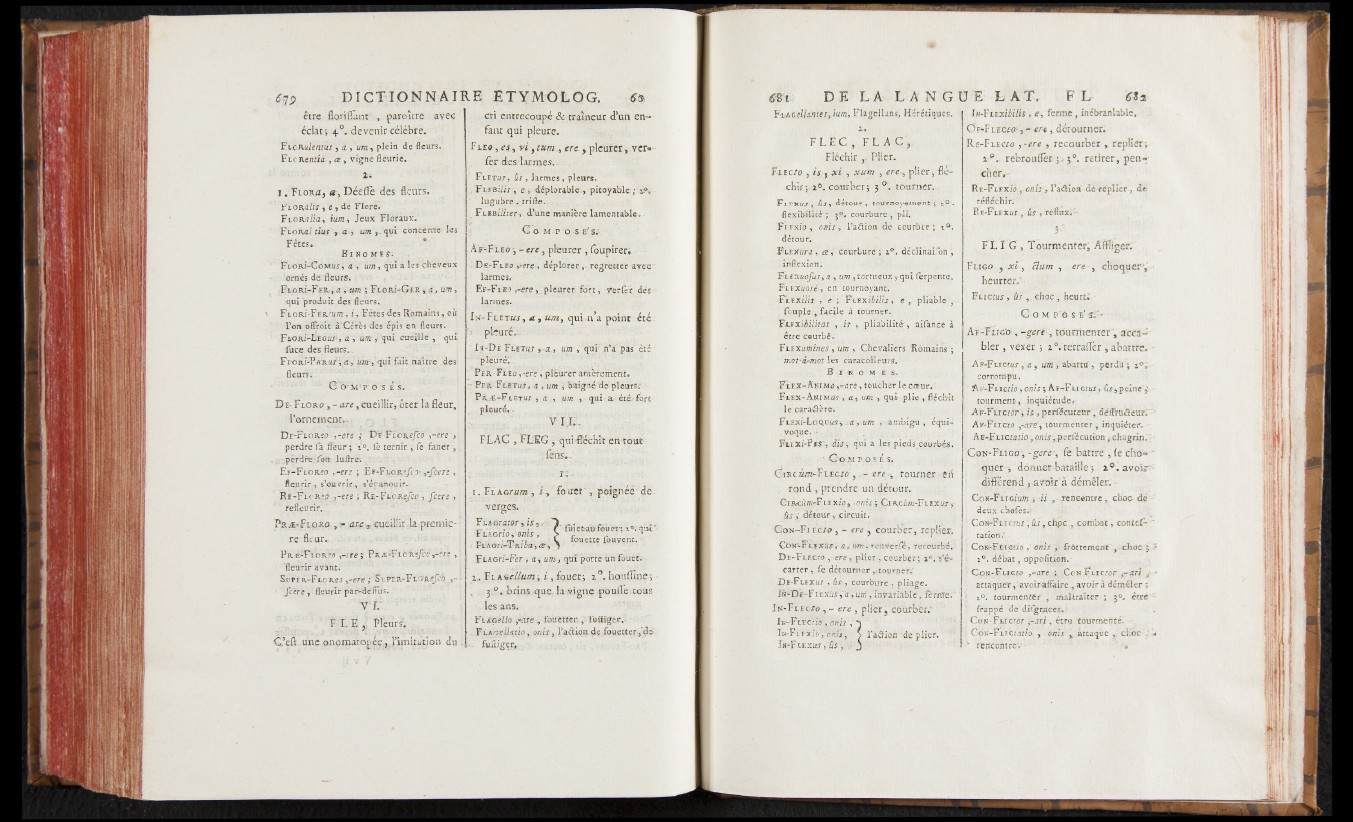 679 DICTIONNAIRE ÉTYMOLOG.
être florissant , paroître avec
éclat ; 4°. devenir célèbre.
FLORulentus , a , um, plein de fleurs.
FLORentia , æ , vigne fleurie.
2.
1. FLORA, æ, Déesse des fleurs.
FLORalis , e , de Flore.
FLORalia, ium, Jeux Floraux.
FLORalitius , a , um , qui concerne les
Fêtes.
BINOMES.
FLORI-COMUS, a , um, qui a les cheveux
ornés de fleurs.
FLORI-FER, a , um ; FLORI-GER , a, um,
qui produit des fleurs.
FLORI-FERtum, i, Fêtes des Romains, où
l'on offroit à Cérès des épis en fleurs.
FLORI-LEGUS, a , um , qui cueille , qui
suce des fleurs.
FLORI-PARUS, a, um, qui fait naître des
fleurs.
COMPOSÉS.
DE-FLORO , - are, cueillir, ôter la fleur,
l'ornement.
DE-FLOREO ,-ere ; DE FLOREsco ,-ere ,
perdre sa fleur ; 2°. se ternir , se faner ,
perdre son lustre.
EF-FLOREO ,-ere ; EF-FLOREsco ,-scere ,
fleurir , s'ouvrir, s'épanouir.
RE-FLOREO ,-ere ; RE-FLOREsco , scere ,
refleurir.
PRÆ-FLORO , - are , cueillir la premie-
re fleur.
PRÆ-FLOREO ,-ere ; PRÆ-FLOREsco ,-ere ,
fleurir avant.
SUPER-FLOREO ,-ere ; SUPER-FLOREsco ,-
scere , fleurir par-dessus.
VI.
FLE, Pleurs.
C'est une onomatopée, l'imitation du
cri entrecoupé & traîneur d'un en-
fant qui pleure.
FLEO , es, vi , tum , ere , pleurer, ver-
ser des larmes.
FLETUS, ûs , larmes , pleurs.
FLEBILis , e , déplorable , pitoyable ; 2°.
lugubre , triste.
FLEBILiter, d'une manière lamentable.
COMPOSÉS.
AF-FLEO , - ere , pleurer , soupirer.
DE-FLEO ,-ere , déplorer , regretter avec
larmes.
EF-FLEO ,-ere , pleurer fort, verser des
larmes.
IN-FLETUS, a , um, qui n'a point été
pleuré.
IN-DE FLETUS , a , um , qui n'a pas été
pleuré.
PER FLEO ,-ere , pleurer amèrement.
PER FLETUS, a , um , baigné de pleurs.
PRÆ-FLETUS , a , um , qui a été fort
pleuré.
VII.
FLAC , FLEG , qui fléchit en tout
sens.
1.
1. FLAGrum , i , fouet , poignée de
verges.
FLAGRator , is ,
FLAGRio , onis ,
FLAGRi-TRIba, æ,
sujet au fouet ; 2°. qui
fouette souvent.
FLAGRi-Fer , a , um , qui porte un fouet.
2. FLAGellum , i , fouet ; 2°. houssine ;
3°. brins que la vigne pousse tous
les ans.
FLAGello ,-are , fouetter , fustiger.
FLAGellatio , onis , l'action de fouetter, de
fustiger.
681 DE LA LANGUE LAT. FL 682
FLAGellantes, ium, Flagellans, Hérétiques.
2.
FLEC, FLAC,
Fléchir , Plier.
FLECTO , is , xi , xum , ere , plier , flé-
chir ; 2°. courber ; 3°. tourner.
FLEXUS , ûs, détour , tournoyement ; 2°.
flexibilité ; 3°. courbure , pli.
FLEXIO , onis , l'action de courber ; 2°.
détour.
FLEXURA , æ , courbure ; 2°. déclinaison ,
inflexion.
FLEXUosus , a , um , tortueux , qui serpente.
FLEXUosè , en tournoyant.
FLEXILis , e ; FLEXIBILis , e , pliable ,
souple , facile à tourner.
FLEXIBILitas , is , pliabilité , aisance à
être courbé.
FLEXUmines , um , Chevaliers Romains ;
mot-à-mot les caracolleurs.
BINOMES.
FLEX-ANIMO ,-are , toucher le cœur.
FLEX-ANIMUS , a , um , qui plie , fléchit
le caractère.
FLEXI-LOQUUS , a , um , ambigu , équi-
voque.
FLEXI-PES , dis , qui a les pieds courbés.
COMPOSÉS.
CIRCUM-FLECTO , - ere , tourner en
rond , prendre un détour.
CIRCUM-FLEXIO , onis ; CIRCUM-FLEXUS,
ûs , détour , circuit.
CON-FLECTO , - ere , courber , replier.
CON-FLEXUS , a , um , renversé , recourbé.
DE-FLECTO , ere , plier , courber ; 2°. s'é-
carter , se détourner , tourner.
DE-FLEXUS , ûs , courbure , pliage.
IN-DE-FLEXUS , a , um , invariable , ferme.
IN-FLECTO , - ere , plier , courber.
IN-FLECTIO , onis ,
IN-FLEXIO , onis ,
IN-FLEXUS , ûs ,
l'action de plier.
IN-FLEXIBILis , e , ferme , inébranlable.
OF-FLECTO , - ere , détourner.
RE-FLECTO ,-ere , recourber , replier ;
2°. rebrousser ; 3°. retirer , pen-
cher.
RE-FLEXIO , onis , l'action de replier , de
réfléchir.
RE-FLEXUS , ûs , reflux.
3.
FLIG , Tourmenter, Affliger.
FLIGO , xi , ctum , ere , choquer,
heurter.
FLICTUS , ûs , choc , heurt.
COMPOSÉS.
AF-FLIGO , -gere , tourmenter, acca-
bler , vexer ; 2°. terrasser , abattre.
AF-FLICTUS , a , um , abattu , perdu ; 2°.
corrompu.
AF-FLICTIO , onis ; AF-FLICTUS , ûs, peine ;
tourment , inquiétude.
AF-FLICTOR , is , persécuteur , destructeur.
AF-FLICTO ,-are , tourmenter , inquiéter.
AF-FLICTATIO , onis , persécution , chagrin.
CON-FLIGO , -gere , se battre , se cho-
quer , donner bataille ; 2°. avoir
différend , avoir à démêler.
CON-FLIGIUM , ii , rencontre , choc de
deux choses.
CON-FLICTUS , ûs , choc , combat , contes-
tation.
CON-FLICTIO , onis , frottement , choc ;
2°. débat , opposition.
CON-FLICTO ,-are ; CON-FLICTOR ,-ari ,
attaquer , avoir affaire , avoir à démêler ;
2°. tourmenter , maltraiter ; 3°. être
frappé de disgraces.
CON-FLICTOR ,-ari , être tourmenté.
CON-FLICTATIO , onis , attaque , choc ,
rencontre.